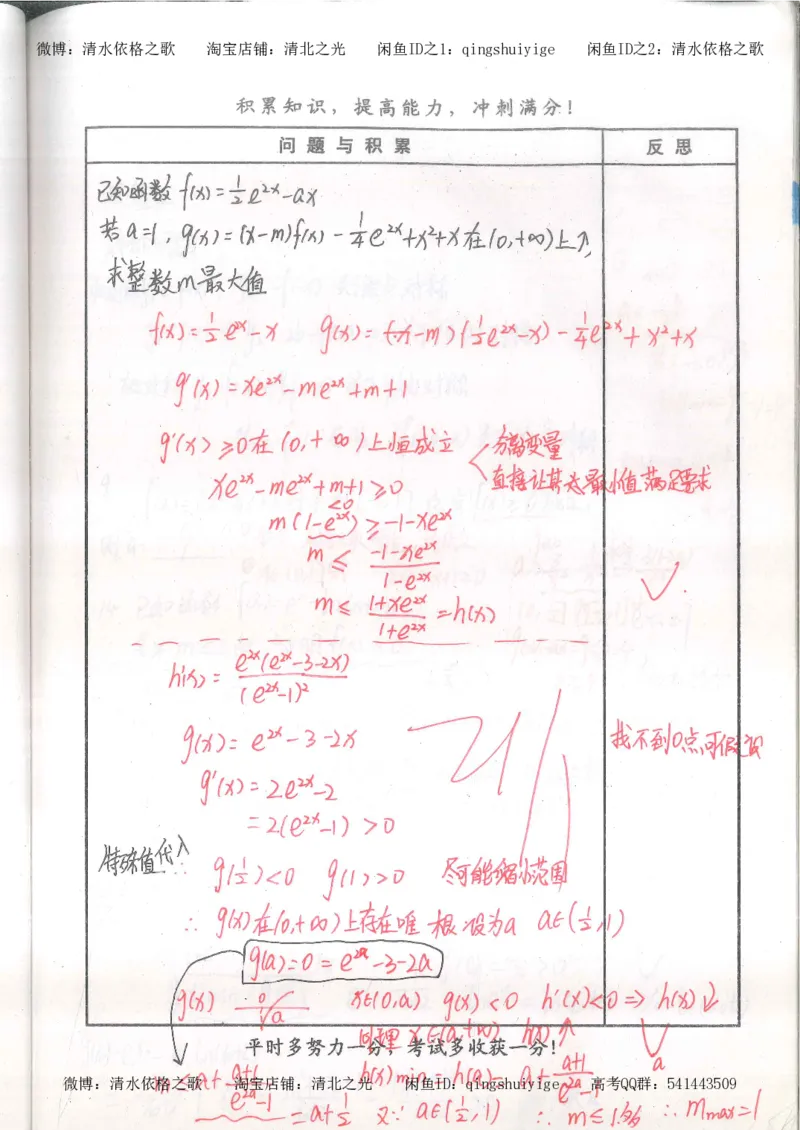 微博：清水依格之歌 淘宝店铺：清北之光 闲鱼ID之1：qingshuiyige 闲鱼ID之2：清水依格之歌
积累知识，提高能力，冲刺满分！
问题与积累 反思
已知函数 f(x)=½e^{2x}-ax
若a=1，g(x)=(x-m)f(x)-¼e^{2x}+x²+x在(0,+∞)上↑,
求整数m最大值
f(x)=½e^{2x}-x g(x)=(x-m)(½e^{2x}-x)-¼e^{2x}+x²+x
g'(x)=xe^{2x}-me^{2x}+m+1
g'(x)≥0在(0,+∞)上恒成立 分离变量
直接让其最小值满足要求
xe^{2x}-me^{2x}+m+1≥0
<0
m(1-e^{2x})≥-1-xe^{2x}
m≤(-1-xe^{2x})/(1-e^{2x})
m≤(1+xe^{2x})/(1+e^{2x})=h(x)
h'(x)=e^{2x}(e^{2x}-3-2x)/(e^{2x}-1)²
g(x)=e^{2x}-3-2x
找不到0点可假设
g'(x)=2e^{2x}-2
=2(e^{2x}-1)>0
特殊值代入
g(½)<0 g(1)>0 尽可能缩小范围
∴g(x)在(0,+∞)上存在唯一根 设为a a∈(½,1)
g(a)=0=e^{2a}-3-2a
g(x) 0 a x∈(0,a) g(x)<0 h'(x)<0⇒h(x)↓
同理 x∈(a,+∞) h(x)↑
平时多努力一分，考试多收获一分！
a
h(x)min=h(a)=a+(a+1)/(e^{2a}-1)
微博：清水依格之歌 淘宝店铺：清北之光 闲鱼ID之1：qingshuiyige 高考QQ群：541443509
a+(a+1)/(e^{2a}-1)
=a+½ 又∵a∈(½,1) ∴m≤1.% ∴m max=1